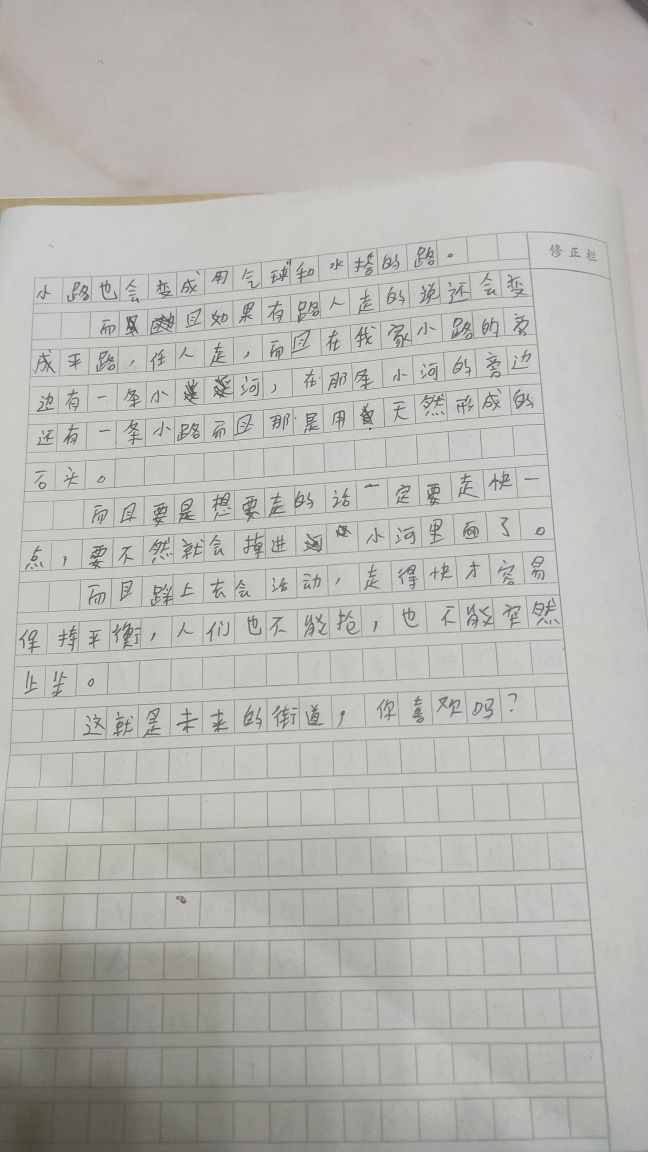 修正栏
小路也会变成用气球和水塔的路。
而且如果有路人走的说还会变
成平路，任人走，而且在我家小路的旁
边有一条小河，在那条小河的旁边
还有一条小路而且那是用天然形成的
石头。
而且要是想要走的话一定要走快一
点，要不然就会掉进小河里面了。
而且踩上去会活动，走得快才容易
保持平衡，人们也不能抢，也不能突然
止步。
这就是未来的街道，你喜欢吗？